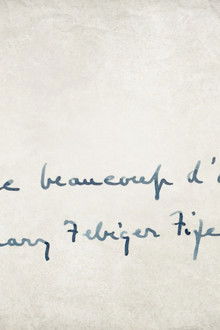 e beaucoup d'
ary Febiger Fife